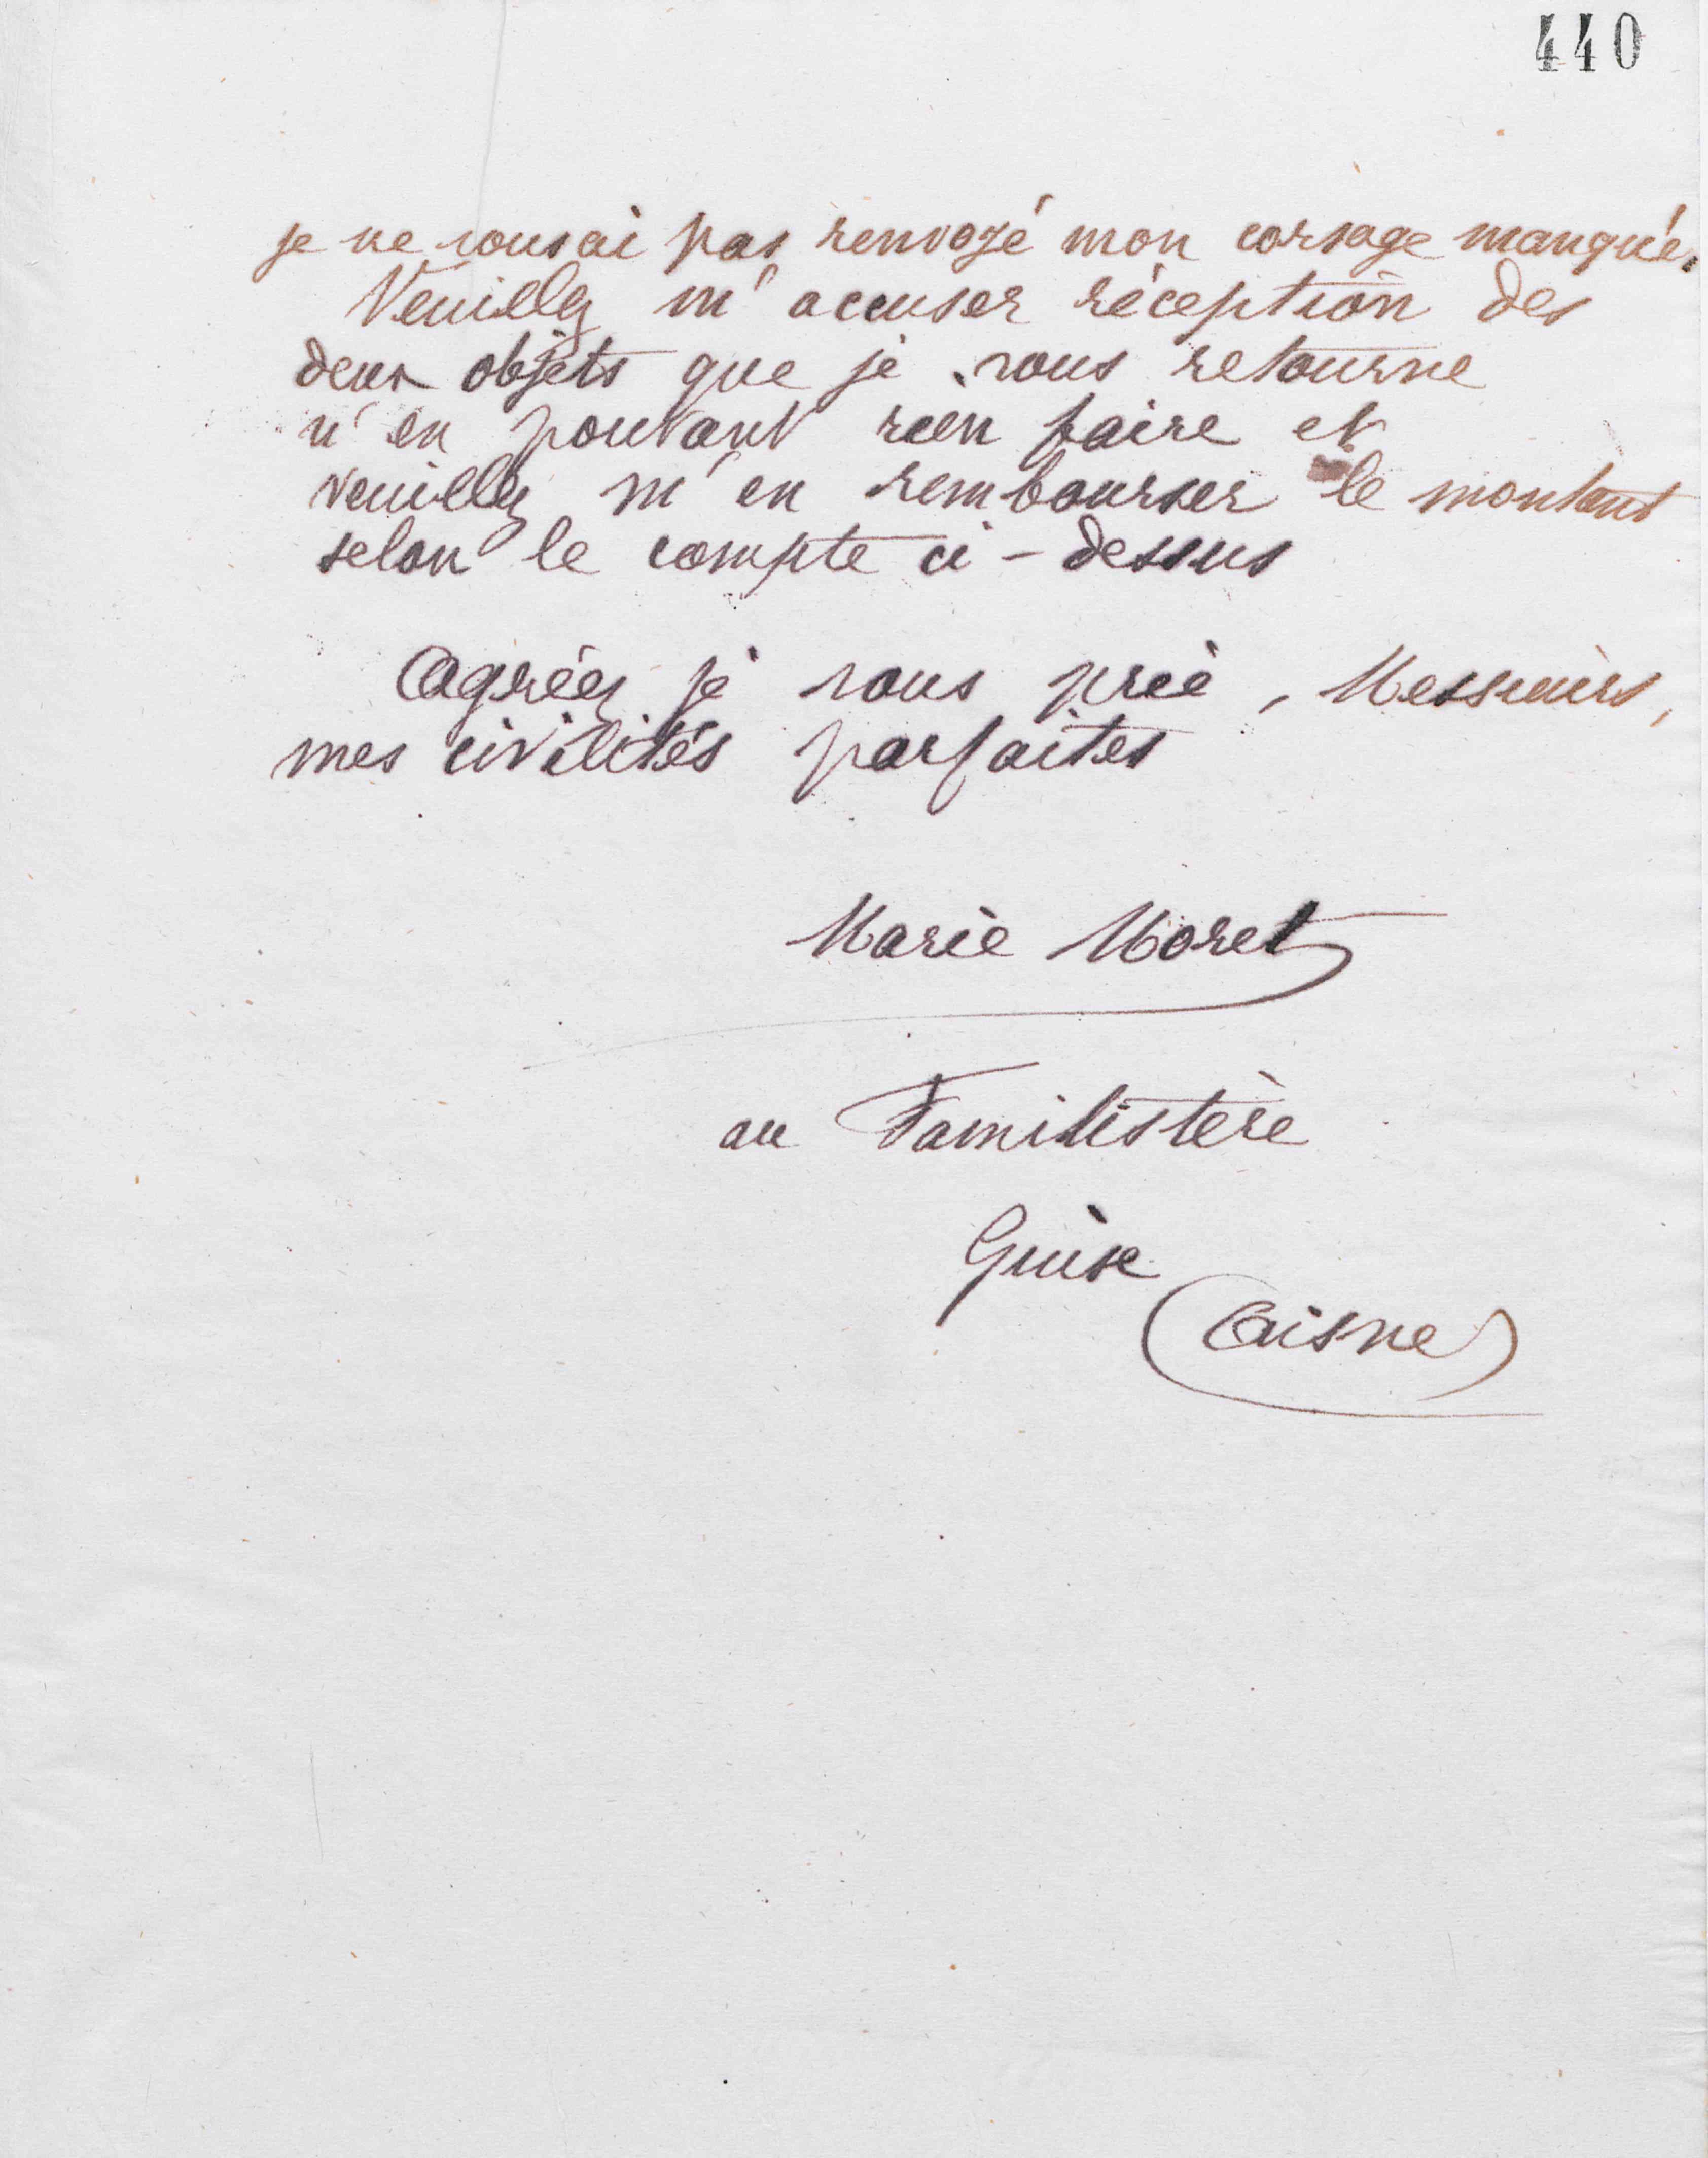 440
je ne vous ai pas renvoyé mon corsage manqué.
Veuillez m'accuser réception des
deux objets que je vous retourne
n'en pouvant rien faire et
veuillez m'en rembourser le montant
selon le compte ci-dessus
Agréez je vous prie, Messieurs,
mes civilités parfaites
Marie Moret
au Familistère
Guise
(Aisne)